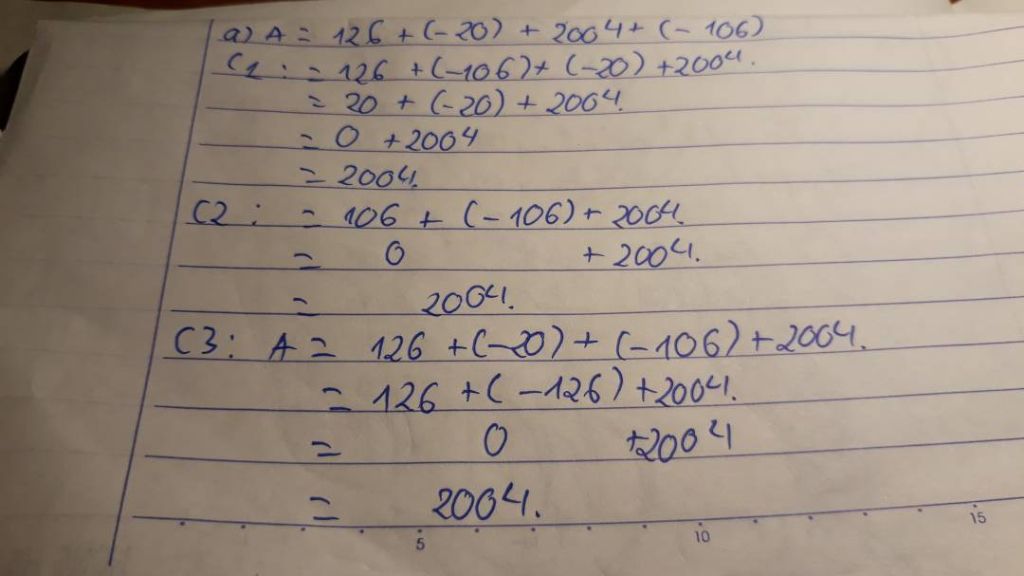 a) A = 126 + (-20) + 2004 + (- 106)
C1 : = 126 + (-106) + (-20) + 2004.
= 20 + (-20) + 2004.
= 0 + 2004
= 2004.
C2 : = 106 + (-106) + 2004.
= 0 + 2004.
= 2004.
C3 : A = 126 + (-20) + (-106) + 2004.
= 126 + ( -126) + 2004.
= 0 +2004
= 2004.
5 10 15